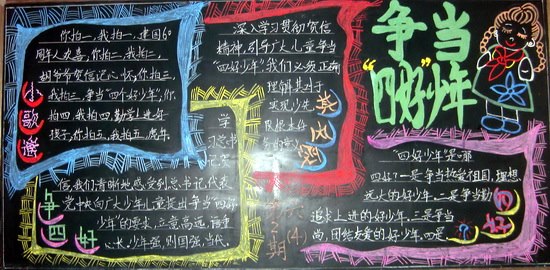 争当
“四好”少年
小歌谣
你拍一,我拍一,建国60
周年人人喜,你拍二,我拍二,
胡爷爷贺信记心怀,你拍三,
我拍三,争当“四好少年”,你
拍四,我拍四,勤学上进好
孩子,你拍五,我拍五,虎年
深入学习贯彻贺信
精神,引导广大儿童争当
“四好少年”,我们必须正确
理解其对于
实现少先
学
习总书
记贺
信,我们清晰地感受到总书记代表
党中央向广大少年儿童提出争当“四好
少年”的要求,立意高远,语重
心长,少年强,则国强,当代
争四好
第2期
(4)
“四好少年”是哪
四好?一是争当热爱祖国,理想
远大的好少年,二是争当勤
追求上进的好少年,三是争当
尚,团结友爱的好少年,四是
四好